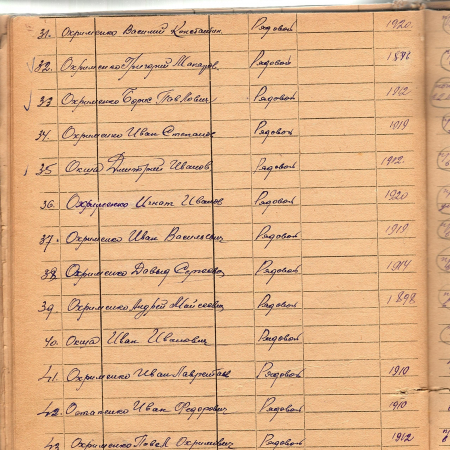 31. Охрименко Василий Константин. Рядовой 1920
32. Охрименко Григорий Макаров. Рядовой
33 Охрименко Борис Павлович Рядовой 1912
34. Охрименко Иван Степанов Рядовой 1919
35 Окша Дмитрий Иванов Рядовой 1912
36. Охрименко Игнат Иванов Рядовой 1920
37. Охрименко Иван Васильевич Рядовой 1919
38. Охрименко Давыд Сергеевич Рядовой 1914
39. Охрименко Андрей Моисеевич Рядовой 1898
40. Окша Иван Иванович Рядовой
41. Охрименко Иван Лаврентьев Рядовой 1910
42. Остапенко Иван Федорович Рядовой 1910
43 Охрименко Павел Охримович Рядовой 1912